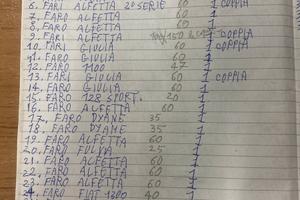 6. FARI ALFETTA 2º SERIE 60 1 COPPIA
7. FARO ALFETTA 60 1
8. FARO ALFETTA 60 1
9. FARI ALFETTA 150 1 COPPIA
10. FARI GIULIA 60 1 COPPIA
11. FARO GIULIA 60 1
12. FARO 1100 47 1
13. FARI GIULIA 60 1 COPPIA
14. FARO GIULIA 60 1
15. FARO 128 SPORT. 20 1
16. FARO ALFETTA 60 1
17. FARO DYANE 35 1
18. FARO DYANE 35 1
19. FARO ALFETTA 60 1
20. FARO FULVIA 25 1
21. FARO ALFETTA 60 1
22. FARO ALFETTA 60 1
23. FARO ALFETTA 60 1
24. FARO FIAT 1300 40 1